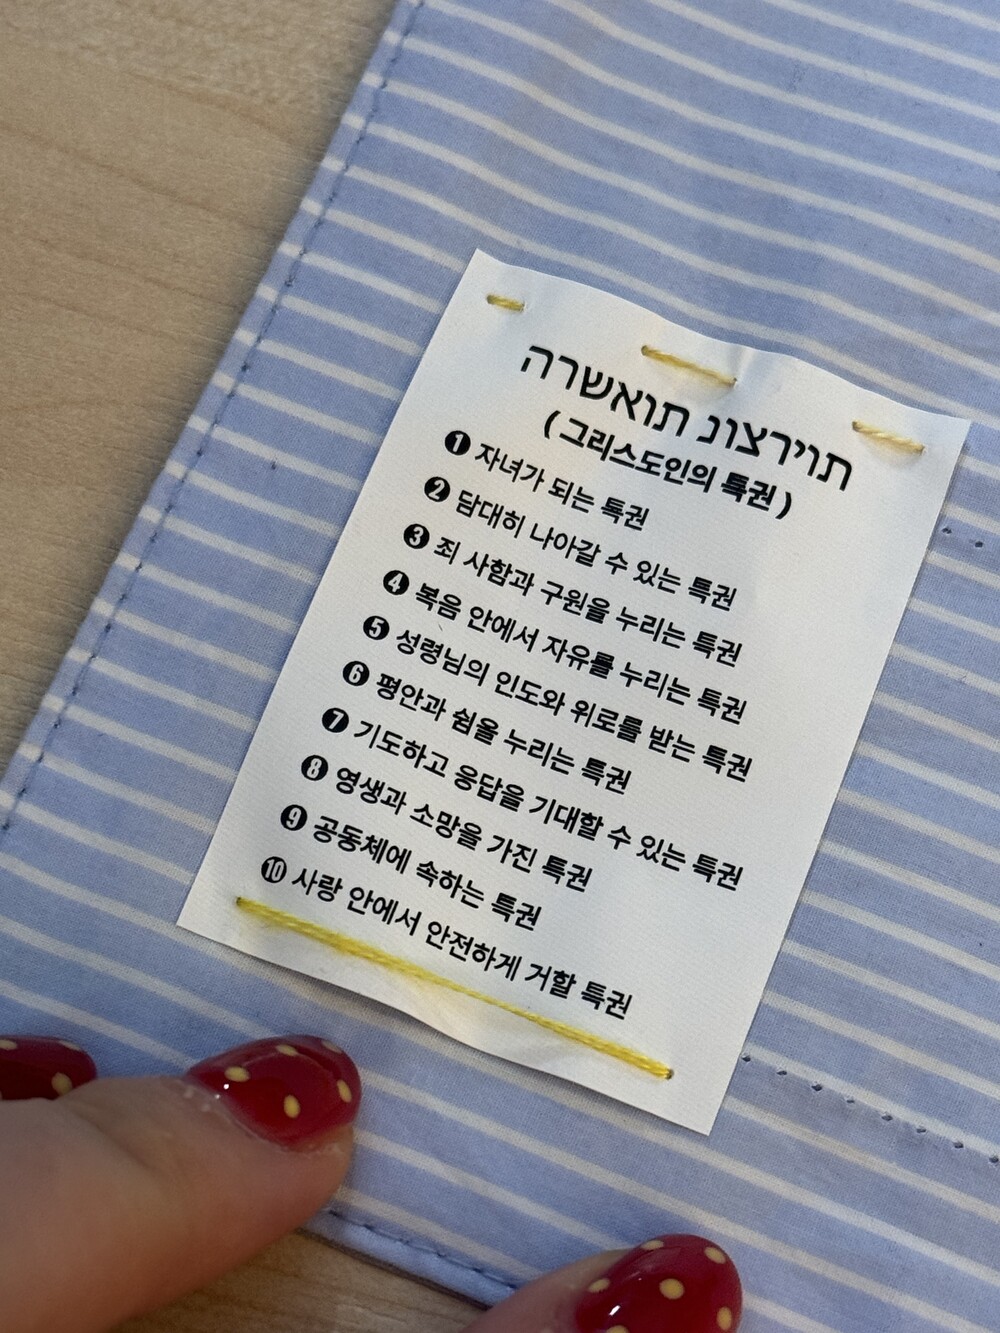 תוירצונ תואשרה
( 그리스도인의 특권 )
❶ 자녀가 되는 특권
❷ 담대히 나아갈 수 있는 특권
❸ 죄 사함과 구원을 누리는 특권
❹ 복음 안에서 자유를 누리는 특권
❺ 성령님의 인도와 위로를 받는 특권
❻ 평안과 쉼을 누리는 특권
❼ 기도하고 응답을 기대할 수 있는 특권
❽ 영생과 소망을 가진 특권
❾ 공동체에 속하는 특권
❿ 사랑 안에서 안전하게 거할 특권